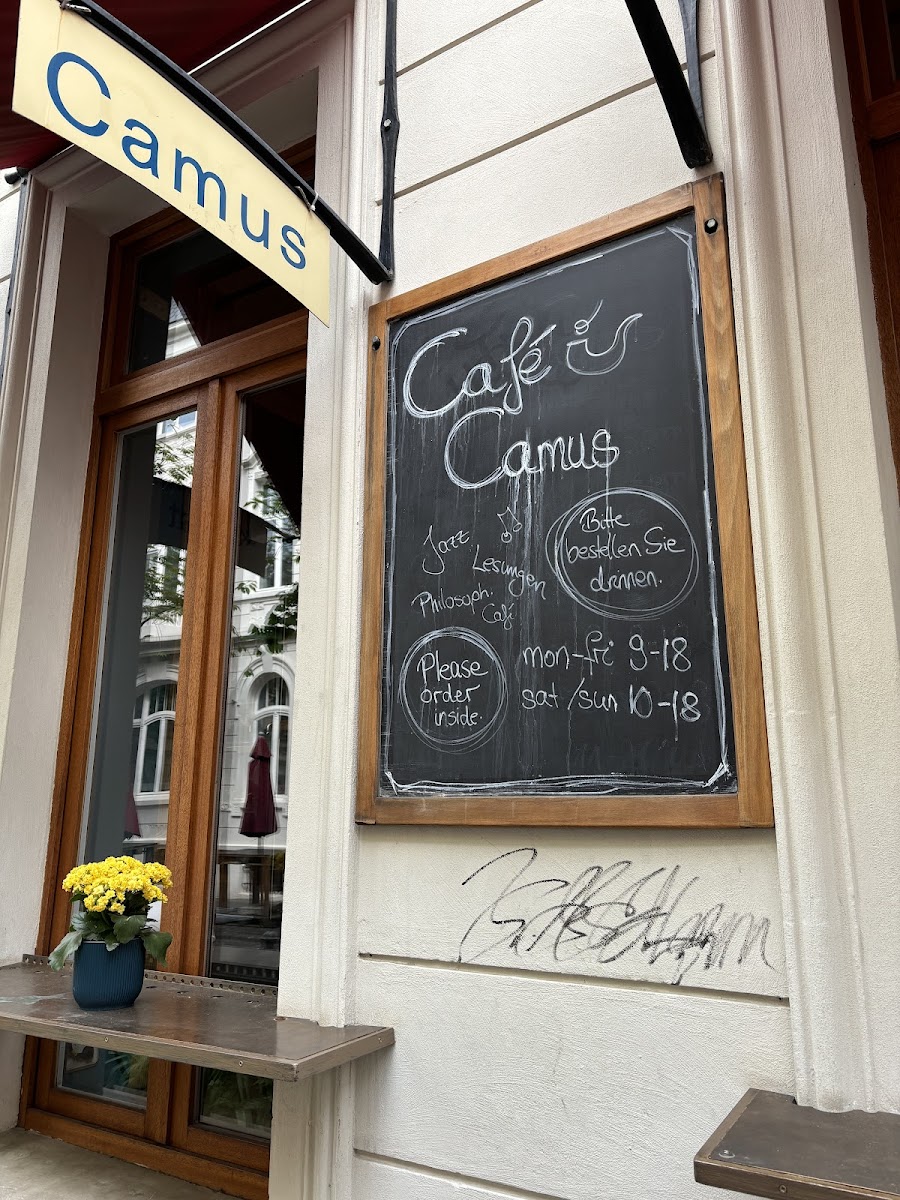 Camus
Café
Camus
Jazz
Lesungen
Philosoph.
Café
Bitte
bestellen Sie
drinnen.
Please
order
inside.
mon-fri 9-18
sat/sun 10-18